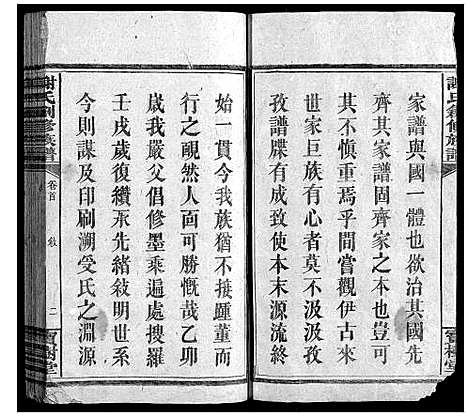 家譜與國一體也欲治其國先
齊其家譜固齊家之本也豈可
其不慎重焉乎間嘗觀伊古來
世家巨族有心者莫不汲汲汲
孜譜牒有成致使本末源流終
始一貫今我族猶不接踵董而
行之靦然人面可勝慨哉乙卯
歲我嚴父倡修墨乘遍處搜羅
壬戌歲復續承先緒敍明世次
今則謀及印刷溯受氏之淵源
謝氏創修族譜
卷首
敍
二
寶樹堂